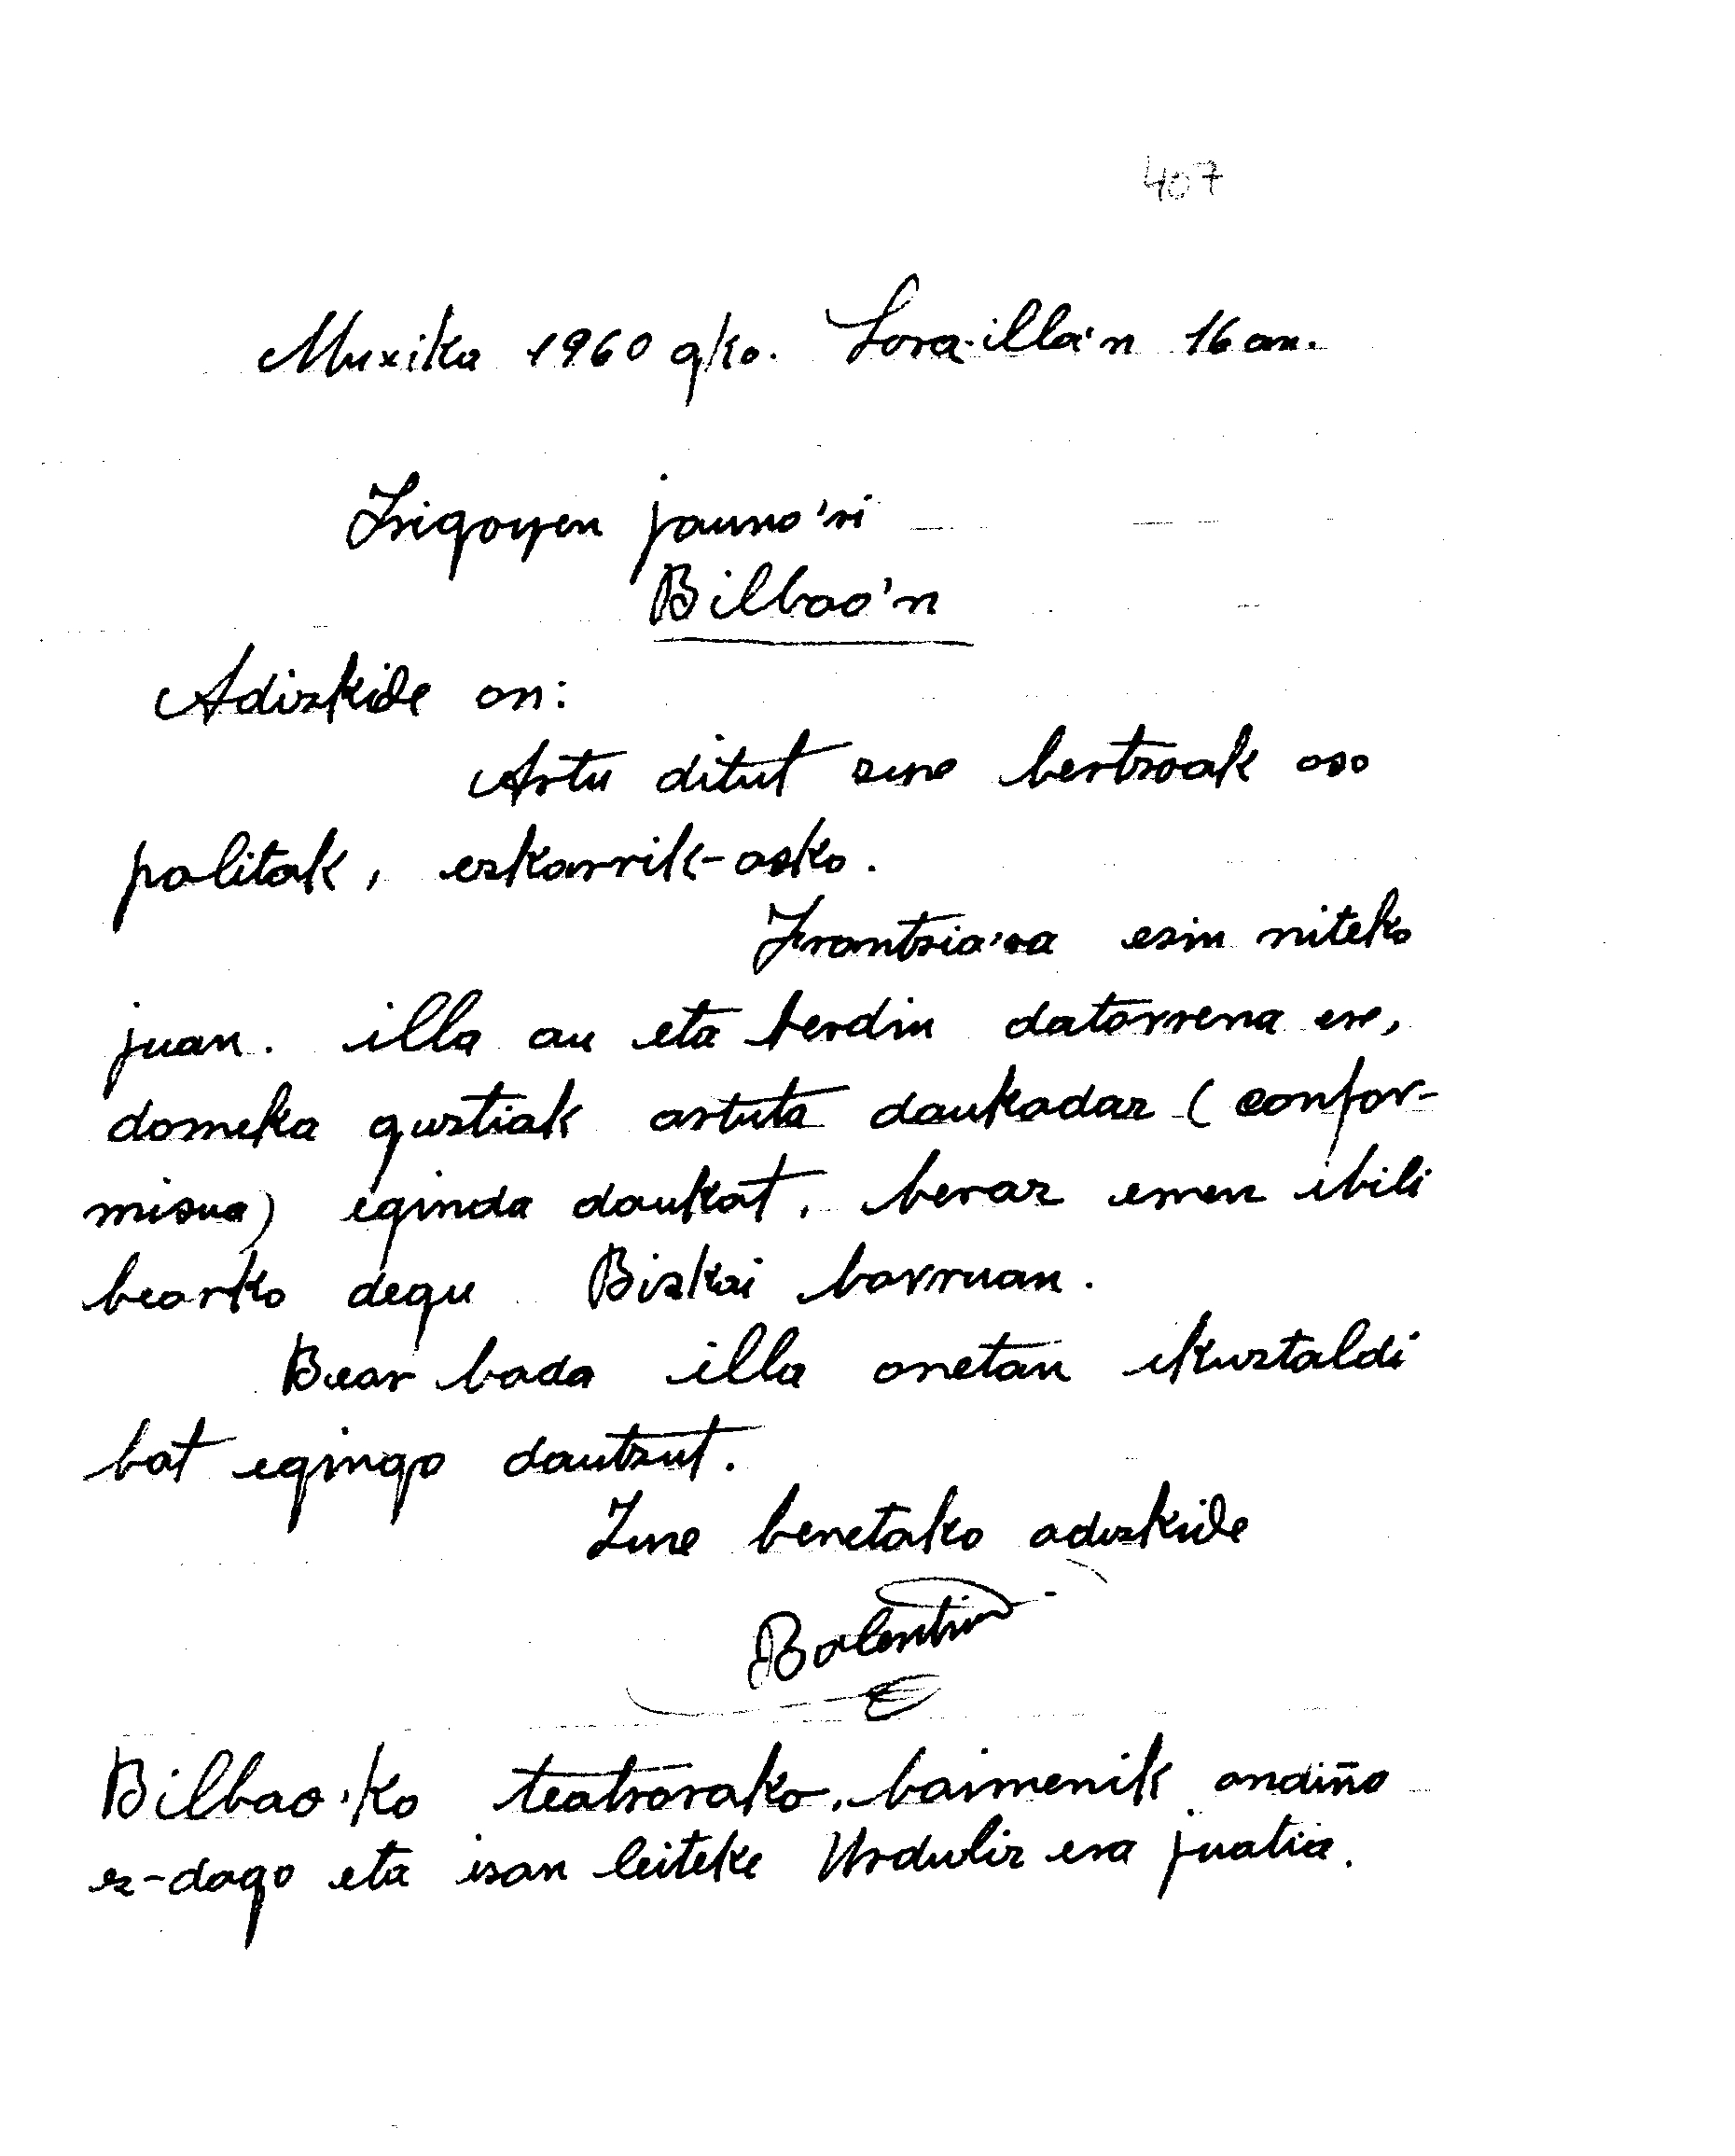 407
Muxika 1960 gko. Lora-illa'n 16an.
Irigoyen jauna'ri
Bilbao'n
Adizkide on:
Artu ditut zure bertzoak oso
politak, ezkarrik-asko.
Frantzia'ra ezin niteke
juan. illa au eta berdin datorrena ere,
domeka guztiak artuta daukadaz (confor-
misua) eginda daukat, beraz emen ibili
bearko degu Bizkai barruan.
Bear bada illa onetan ikuztaldi
bat egingo dautzut.
Zure benetako adizkide
Balentin
Bilbao'ko teatrorako, baimenik andiño
ez-dago eta izan leiteke Urduliz era juatia.